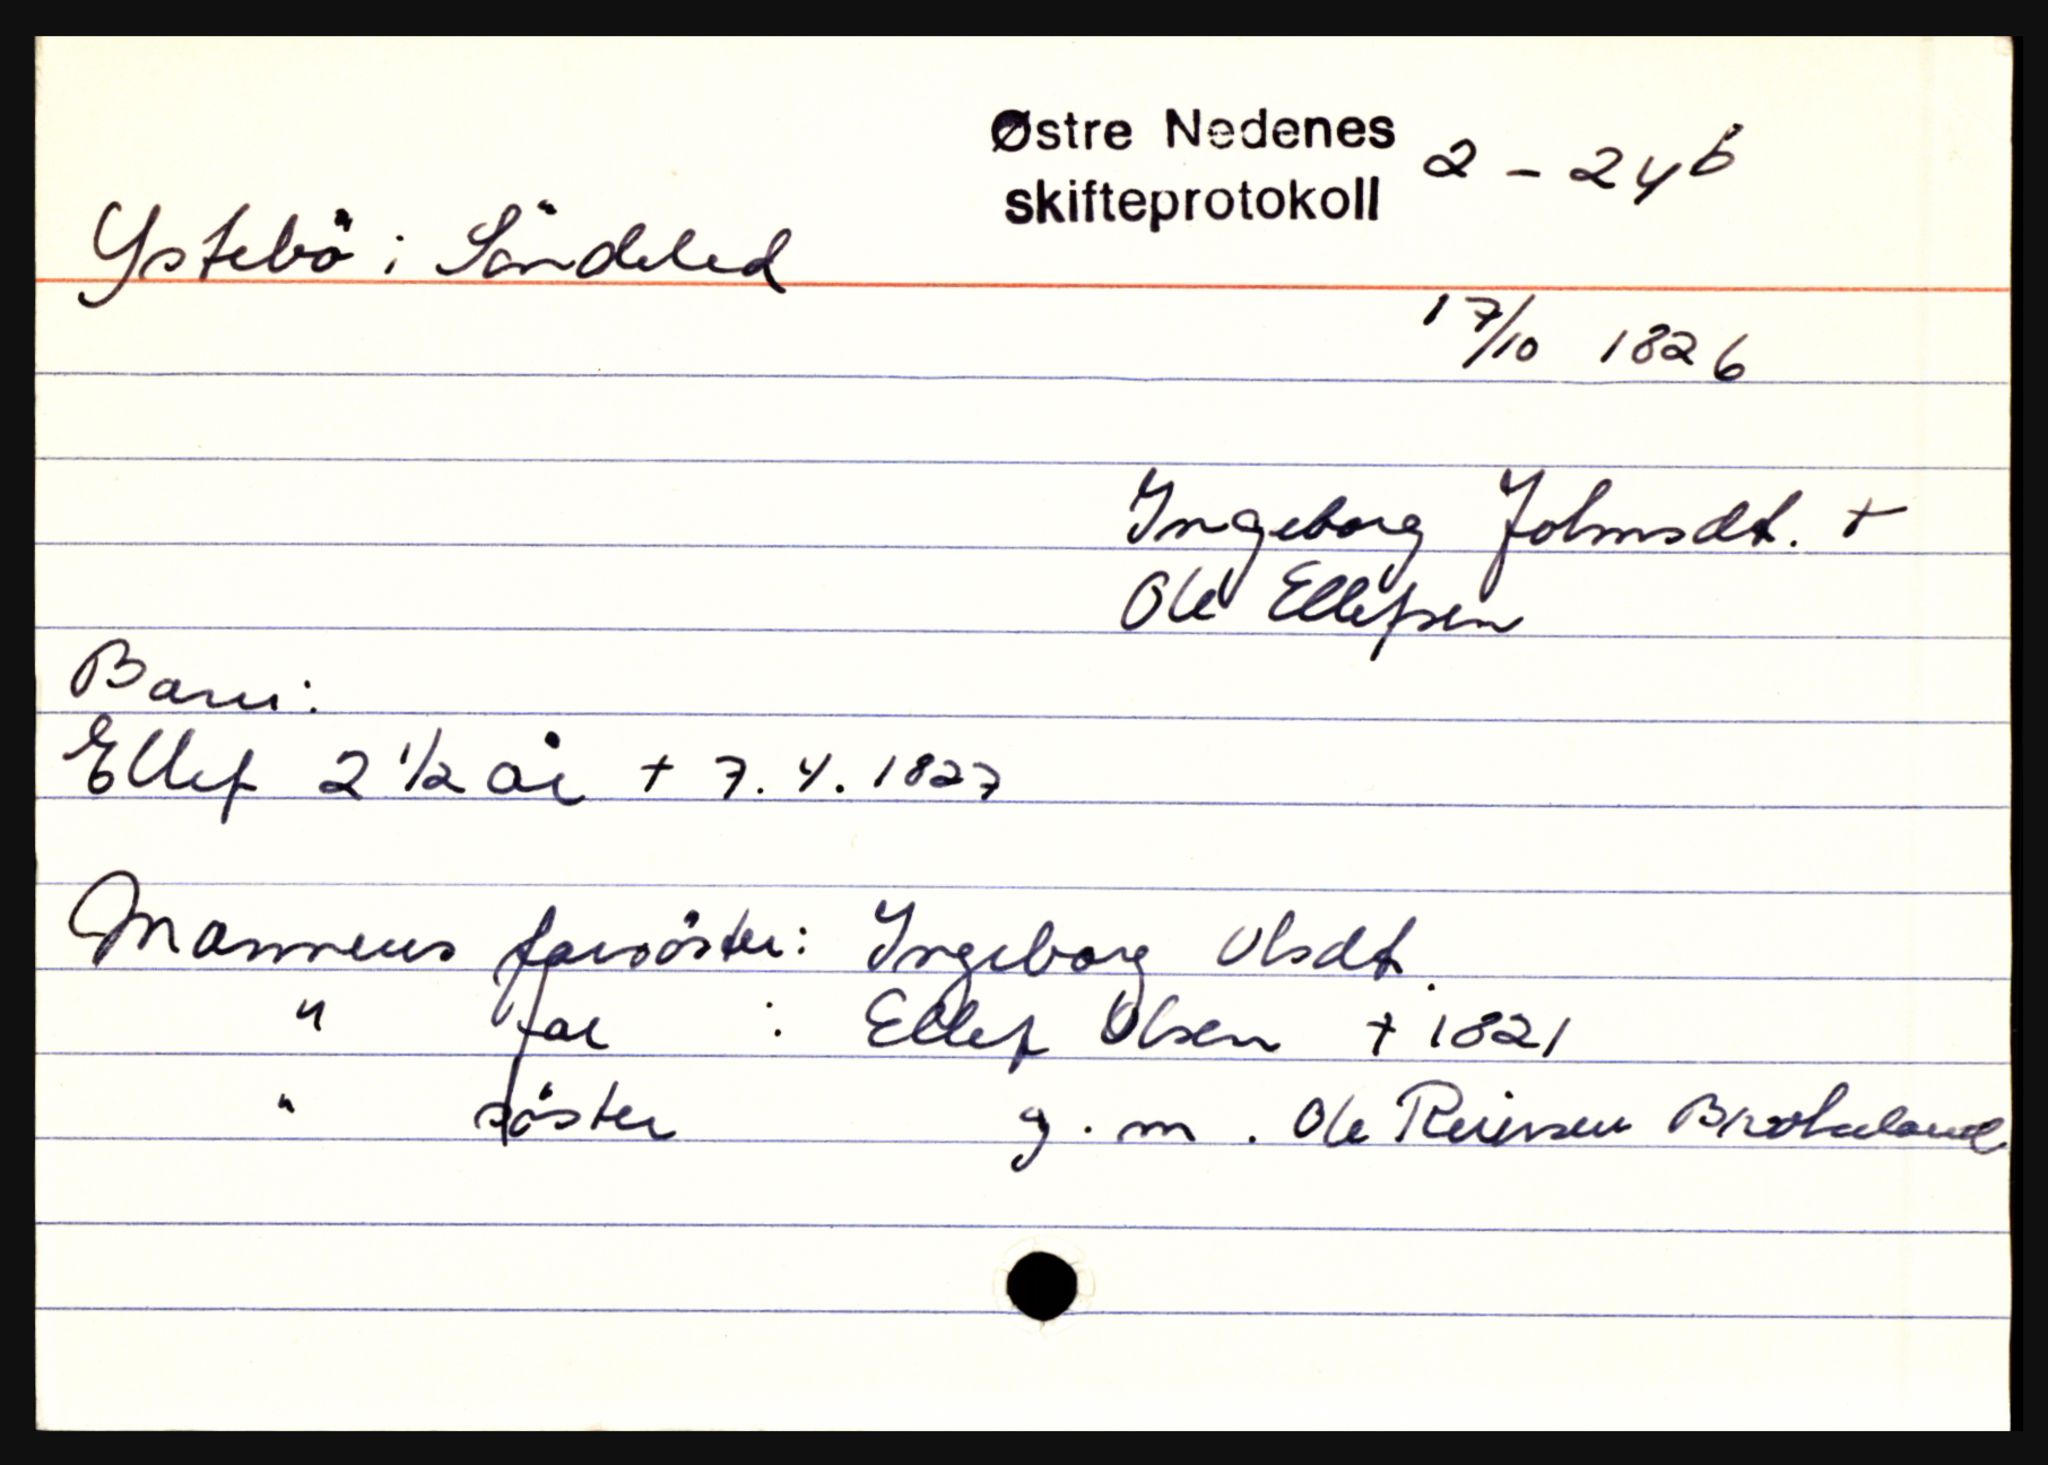 Østre Nedenes 2 - 24b
skifteprotokoll
Ystebö i Söndeled
17/10 1826
Ingeborg Johnsdt. +
Ole Ellefsen
Barn:
Ellef 2 1/2 år + 7. 4. 1827
Mannens farsöster: Ingeborg Olsdt.
" far : Ellef Olsen + 1821
" söster g. m. Ole Reiersen